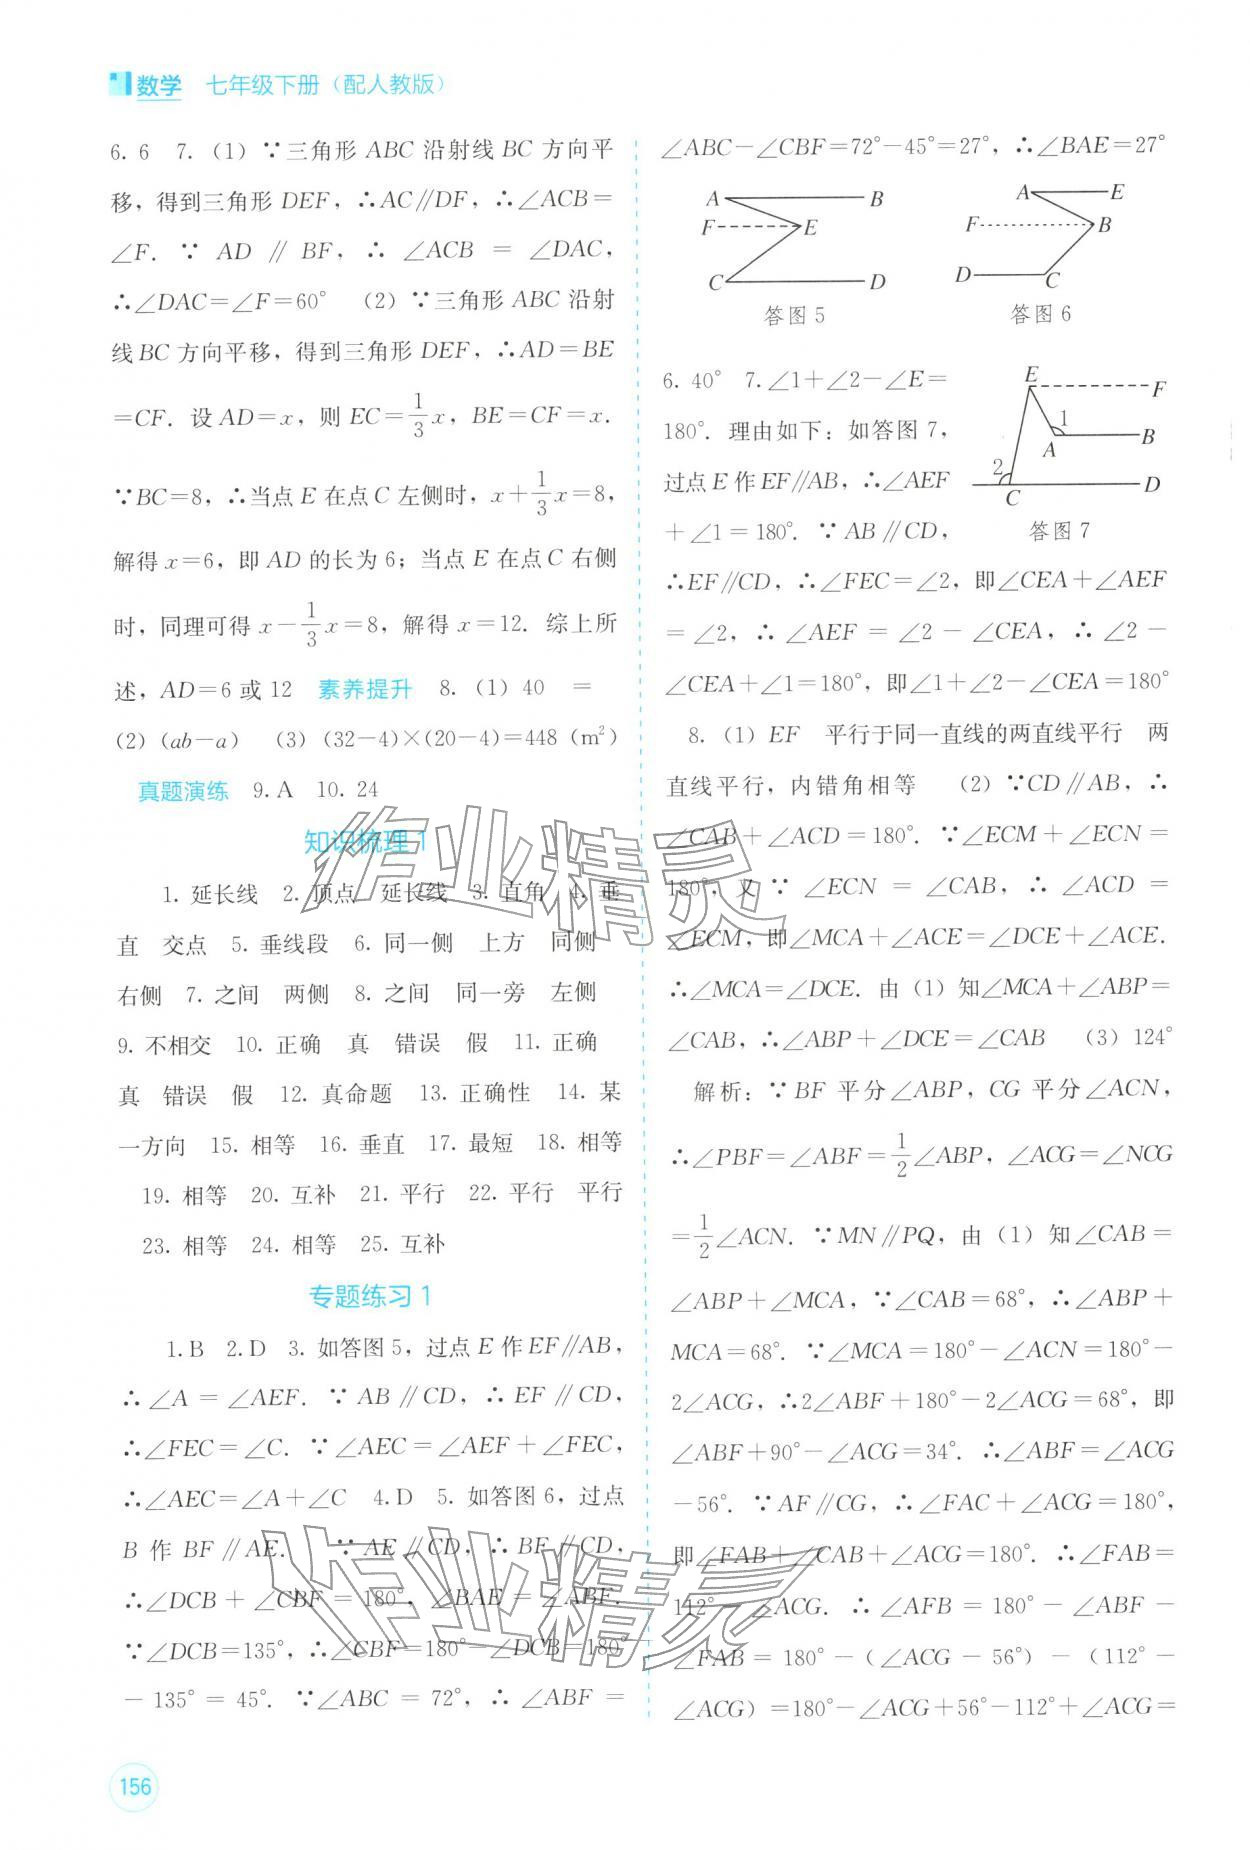 数学 七年级下册（配人教版）
6. 6 7.（1）∵三角形 ABC 沿射线 BC 方向平
移，得到三角形 DEF，∴AC∥DF，∴∠ACB＝
∠F．∵ AD ∥ BF，∴ ∠ACB ＝ ∠DAC，
∴∠DAC＝∠F＝60° （2）∵三角形 ABC 沿射
线 BC 方向平移，得到三角形 DEF，∴AD＝BE
＝CF．设 AD＝x，则 EC＝1/3x，BE＝CF＝x．
∵BC＝8，∴当点 E 在点 C 左侧时，x＋1/3x＝8，
解得 x＝6，即 AD 的长为 6；当点 E 在点 C 右侧
时，同理可得 x－1/3x＝8，解得 x＝12．综上所
述，AD＝6 或 12 素养提升 8.（1）40 ＝
（2）（ab－a） （3）（32－4）×（20－4）＝448（m²）
真题演练 9. A 10. 24
知识梳理 1
1. 延长线 2. 顶点 延长线 3. 直角 4. 垂
直 交点 5. 垂线段 6. 同一侧 上方 同侧
右侧 7. 之间 两侧 8. 之间 同一旁 左侧
9. 不相交 10. 正确 真 错误 假 11. 正确
真 错误 假 12. 真命题 13. 正确性 14. 某
一方向 15. 相等 16. 垂直 17. 最短 18. 相等
19. 相等 20. 互补 21. 平行 22. 平行 平行
23. 相等 24. 相等 25. 互补
专题练习 1
1. B 2. D 3. 如答图 5，过点 E 作 EF∥AB，
∴∠A ＝ ∠AEF．∵ AB ∥ CD，∴ EF ∥ CD，
∴∠FEC＝∠C．∵∠AEC＝∠AEF＋∠FEC，
∴∠AEC＝∠A＋∠C 4. D 5. 如答图 6，过点
B 作 BF∥AE． ∵ AE∥CD，∴ BF∥CD，
∴∠DCB＋∠CBF＝180°，∠BAE＝∠ABF．
∵∠DCB＝135°，∴∠CBF＝180°－∠DCB＝180°
－135°＝45°．∵∠ABC＝72°，∴∠ABF＝
∠ABC－∠CBF＝72°－45°＝27°，∴∠BAE＝27°
A B F E C D
答图 5
A E F B D C
答图 6
6. 40° 7. ∠1＋∠2－∠E＝
180°．理由如下：如答图 7，
过点 E 作 EF∥AB，∴∠AEF
＋∠1＝180°．∵ AB∥CD，
E F 1 A B 2 C D
答图 7
∴EF∥CD，∴∠FEC＝∠2，即∠CEA＋∠AEF
＝∠2，∴∠AEF＝∠2－∠CEA，∴∠2－
∠CEA＋∠1＝180°，即∠1＋∠2－∠CEA＝180°
8.（1）EF 平行于同一直线的两直线平行 两
直线平行，内错角相等 （2）∵CD∥AB，∴
∠CAB＋∠ACD＝180°．∵∠ECM＋∠ECN＝
180°，又 ∵ ∠ECN ＝ ∠CAB，∴ ∠ACD ＝
∠ECM，即∠MCA＋∠ACE＝∠DCE＋∠ACE．
∴∠MCA＝∠DCE．由（1）知∠MCA＋∠ABP＝
∠CAB，∴∠ABP＋∠DCE＝∠CAB （3）124°
解析：∵ BF 平分∠ABP，CG 平分∠ACN，
∴∠PBF＝∠ABF＝1/2∠ABP，∠ACG＝∠NCG
＝1/2∠ACN．∵MN∥PQ，由（1）知∠CAB＝
∠ABP＋∠MCA，∵∠CAB＝68°，∴∠ABP＋
MCA＝68°．∵∠MCA＝180°－∠ACN＝180°－
2∠ACG，∴2∠ABF＋180°－2∠ACG＝68°，即
∠ABF＋90°－∠ACG＝34°．∴∠ABF＝∠ACG
－56°．∵AF∥CG，∴∠FAC＋∠ACG＝180°，
即∠FAB＋∠CAB＋∠ACG＝180°．∴∠FAB＝
112°－∠ACG．∴∠AFB＝180°－∠ABF－
∠FAB＝180°－（∠ACG－56°）－（112°－
∠ACG）＝180°－∠ACG＋56°－112°＋∠ACG＝
156
作业精灵
作业精灵